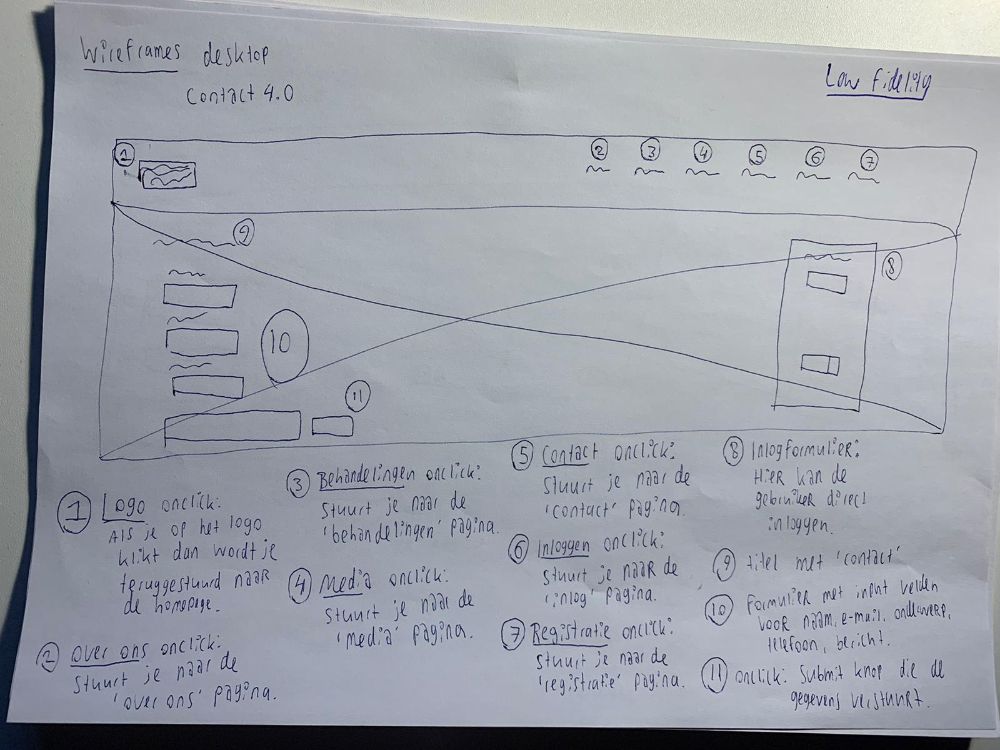 Wireframes desktop
Contact 4.0
Low fidelity
1
2
3
4
5
6
7
9
8
10
11
1 Logo onclick:
Als je op het logo
klikt dan wordt je
teruggestuurd naar
de homepage.
2 over ons onclick:
Stuurt je naar de
'over ons' pagina.
3 Behandelingen onclick:
Stuurt je naar de
'behandelingen' pagina.
4 Media onclick:
Stuurt je naar de
'media' pagina.
5 Contact onclick:
Stuurt je naar de
'contact' pagina.
6 Inloggen onclick:
Stuurt je naar de
'inlog' pagina.
7 Registratie onclick:
Stuurt je naar de
'registratie' pagina.
8 Inlogformulier:
Hier kan de
gebruiker direct
inloggen.
9 titel met 'contact'
10 Formulier met input velden
voor naam, e-mail, onderwerp,
telefoon, bericht.
11 onclick: Submit knop die de
gegevens verstuurt.